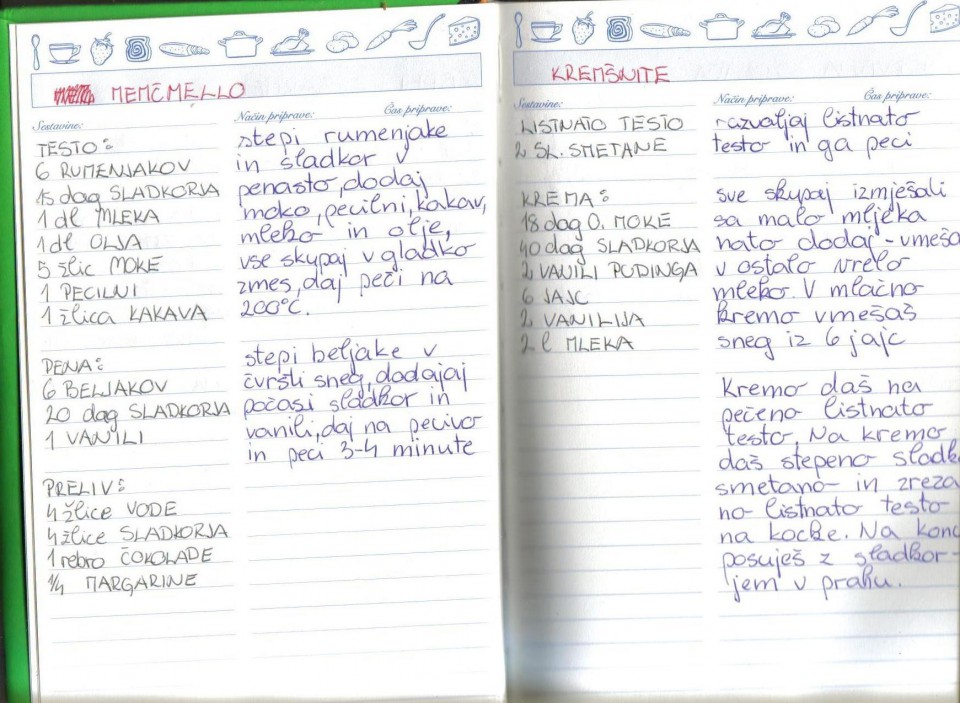 MEMČMELLO
Sestavine:
Način priprave:
Čas priprave:
TESTO:
6 RUMENJAKOV
15 dag SLADKORJA
1 dl MLEKA
1 dl OLJA
5 žlic MOKE
1 PECILNI
1 žlica KAKAVA
PENA:
6 BELJAKOV
20 dag SLADKORJA
1 VANILI
PRELIV:
4 žlice VODE
4 žlice SLADKORJA
1 rebro ČOKOLADE
1/4 MARGARINE
stepi rumenjake
in sladkor v
penasto, dodaj
moko, pecilni, kakav,
mleko in olje,
vse skupaj v gladko
zmes, daj peči na
200°C.
stepi beljake v
čvrsti sneg, dodajaj
počasi sladkor in
vanili, daj na pecivo
in peci 3-4 minute
KREMŠNITE
Sestavine:
Način priprave:
Čas priprave:
LISTNATO TESTO
2 SL. SMETANE
KREMA:
18 dag O. MOKE
40 dag SLADKORJA
2 VANILI PUDINGA
6 JAJC
2 VANILIJA
2 l MLEKA
razvaljaj listnato
testo in ga peci
sve skupaj izmješali
sa malo mljeka
nato dodaj - vmeša
v ostalo vrelo
mleko. V mlačno
kremo vmešaš
sneg iz 6 jajc
Kremo daš na
pečeno listnato
testo. Na kremo
daš stepeno sladk
smetano - in zreza
no listnato testo
na kocke. Na konc
posuješ z sladkor-
jem v prahu.